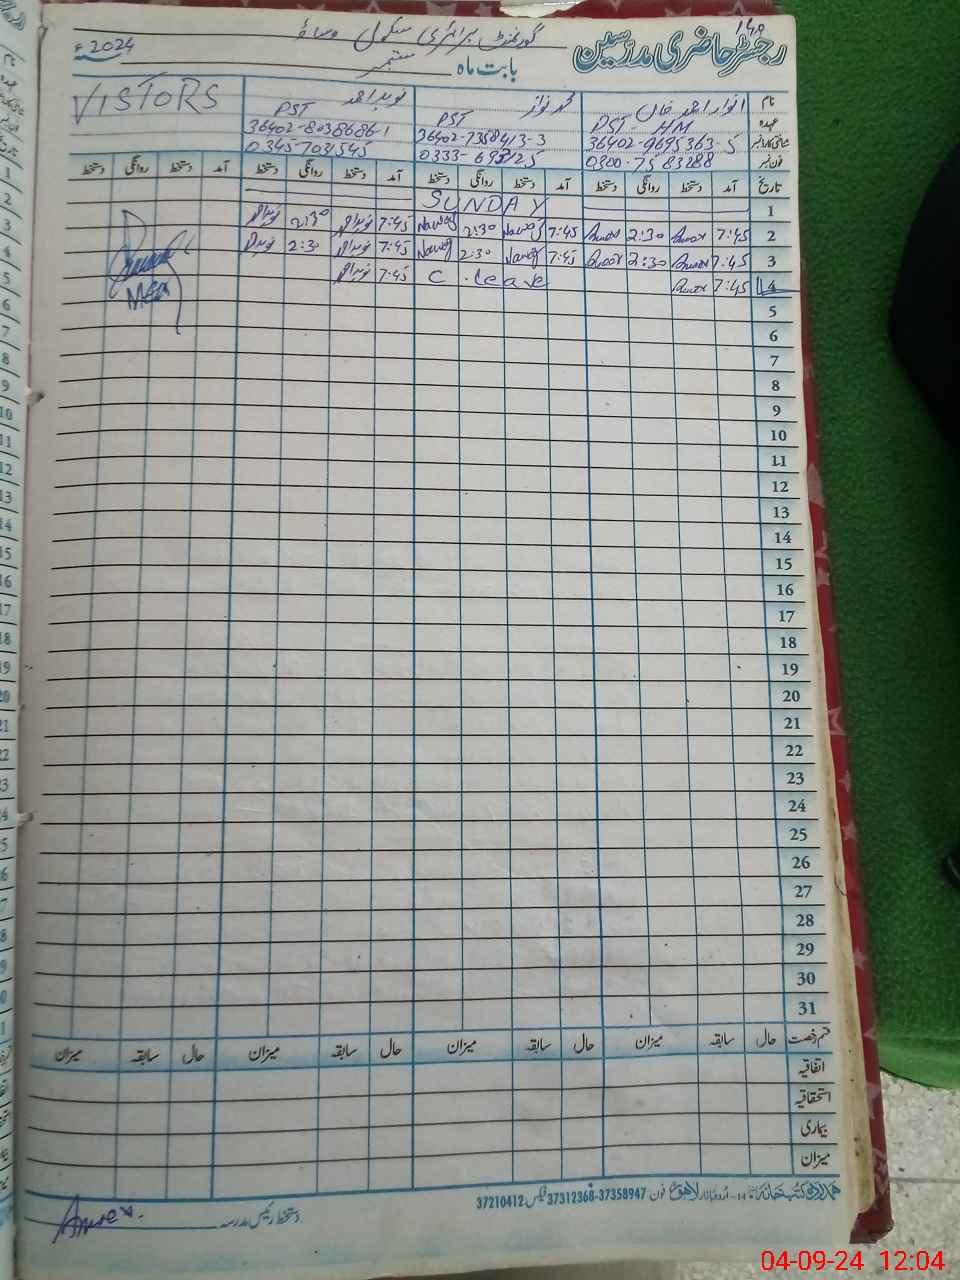 149
رجسٹر حاضری مدرسین
گورنمنٹ پرائمری سکول
بابت ماہ ستمبر 2024ء
نام انوار احمد خاں محمد نواز نوید احمد VISTORS
عہدہ PST - HM PST PST
شناختی کارڈ نمبر 36402-9695363-5 36402-7358413-3 36402-8038686-1
فون نمبر 0300-7583288
تاریخ آمد دستخط روانگی دستخط آمد دستخط روانگی دستخط آمد دستخط روانگی دستخط آمد دستخط روانگی دستخط
1 SUNDAY
2 7:45 Anwar 2:30 Anwar 7:45 Nawaz 2:30 Nawaz 7:45 نوید احمد 2:30 نوید احمد
3 7:45 Anwar 2:30 Anwar 7:45 Nawaz 2:30 Nawaz 7:45 نوید احمد 2:30 نوید احمد
4 7:45 Anwar C. leave 7:45 نوید احمد
5
6
7
8
9
10
11
12
13
14
15
16
17
18
19
20
21
22
23
24
25
26
27
28
29
30
31
قسم رخصت حال سابقہ میزان حال سابقہ میزان حال سابقہ میزان حال سابقہ میزان
اتفاقیہ
استحقاقیہ
بیماری
میزان
ہمدرد کتب خانہ اُردو بازار لاہور فون 37358947-37312368 فیکس 37210412
دستخط رئیس مدرسہ Anwar
04-09-24 12:04